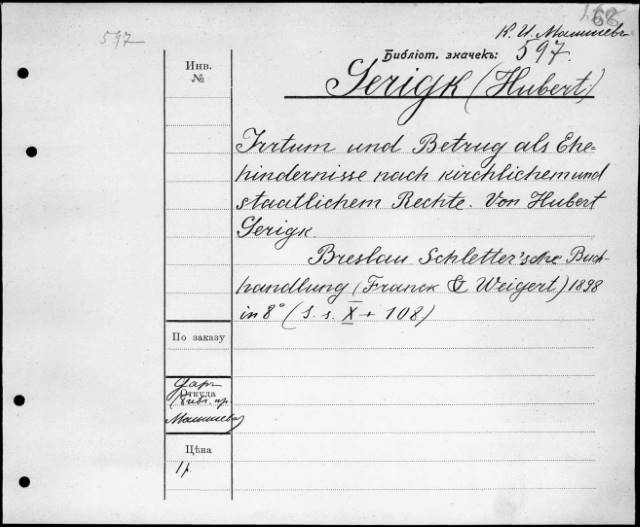 597
168
К. И. Малышевъ
Инв.
№
Библіот. значекъ: 597.
Gerigk (Hubert)
Irrtum und Betrug als Ehe-
hindernisse nach kirchlichem und
staatlichem Rechte. Von Hubert
Gerigk.
Breslau Schletter'sche Buch-
handlung (Franck & Weigert) 1898
in 8° (S. s. X + 108)
По заказу
Откуда
Даръ
Малышева
Цѣна
1 р.